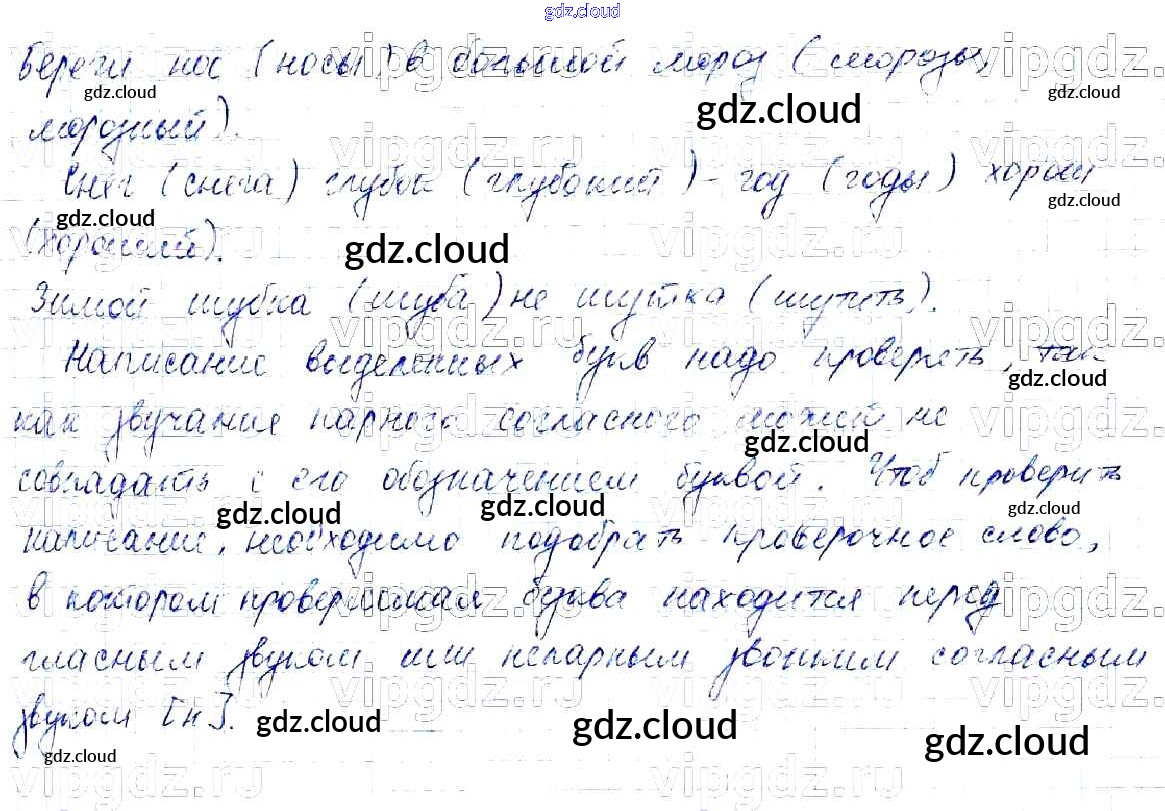 gdz.cloud
Береги нос (носы) в большой мороз (морозы,
gdz.cloud gdz.cloud gdz.cloud
морозный).
Снег (снега) глубок (глубокий) - год (годы) хорош
gdz.cloud gdz.cloud
(хороший).
gdz.cloud
Зимой шубка (шуба) не шутка (шутить).
Написание выделенных букв надо проверять, так
gdz.cloud
как звучание парного согласного может не
gdz.cloud
совпадать с его обозначением буквой. Чтоб проверить
gdz.cloud gdz.cloud gdz.cloud
написание, необходимо подобрать проверочное слово,
в котором проверяемая буква находится перед
гласным звуком или непарным звонким согласным
звуком [н].
gdz.cloud gdz.cloud gdz.cloud
gdz.cloud
vipgdz.ru